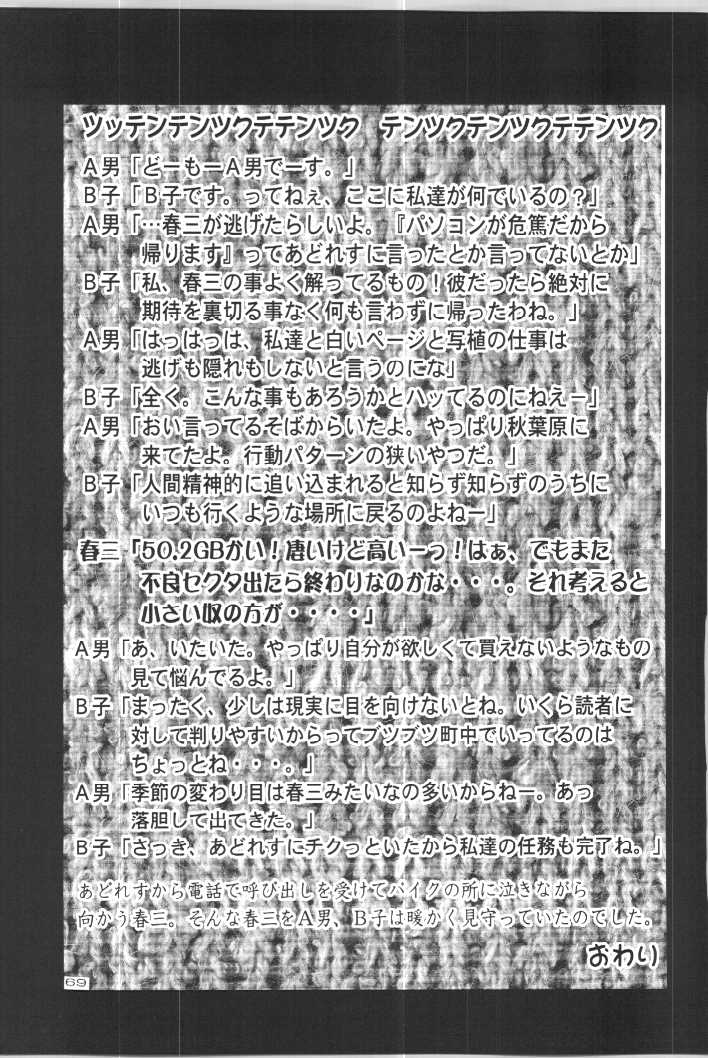 ツッテンテンツクテテンツク　テンツクテンツクテテンツク
Ａ男「どーもーＡ男でーす。」
Ｂ子「Ｂ子です。ってねぇ、ここに私達が何でいるの？」
Ａ男「…春三が逃げたらしいよ。『パソコンが危篤だから
帰ります』ってあどれすに言ったとか言ってないとか」
Ｂ子「私、春三の事よく解ってるもの！彼だったら絶対に
期待を裏切る事なく何も言わずに帰ったわね。」
Ａ男「はっはっは、私達と白いページと写植の仕事は
逃げも隠れもしないと言うのにな」
Ｂ子「全く。こんな事もあろうかとハッてるのにねえー」
Ａ男「おい言ってるそばからいたよ。やっぱり秋葉原に
来てたよ。行動パターンの狭いやつだ。」
Ｂ子「人間精神的に追い込まれると知らず知らずのうちに
いつも行くような場所に戻るのよねー」
春三「50.2GBかい！凄いけど高いーっ！はぁ、でもまた
不良セクタ出たら終わりなのかな・・・。それ考えると
小さい奴の方が・・・・」
Ａ男「あ、いたいた。やっぱり自分が欲しくて買えないようなもの
見て悩んでるよ。」
Ｂ子「まったく、少しは現実に目を向けないとね。いくら読者に
対して判りやすいからってブツブツ町中でいってるのは
ちょっとね・・・。」
Ａ男「季節の変わり目は春三みたいなの多いからねー。あっ
落胆して出てきた。」
Ｂ子「さっき、あどれすにチクっといたから私達の任務も完了ね。」
あどれすから電話で呼び出しを受けてバイクの所に泣きながら
向かう春三。そんな春三をＡ男、Ｂ子は暖かく見守っていたのでした。
おわり
69